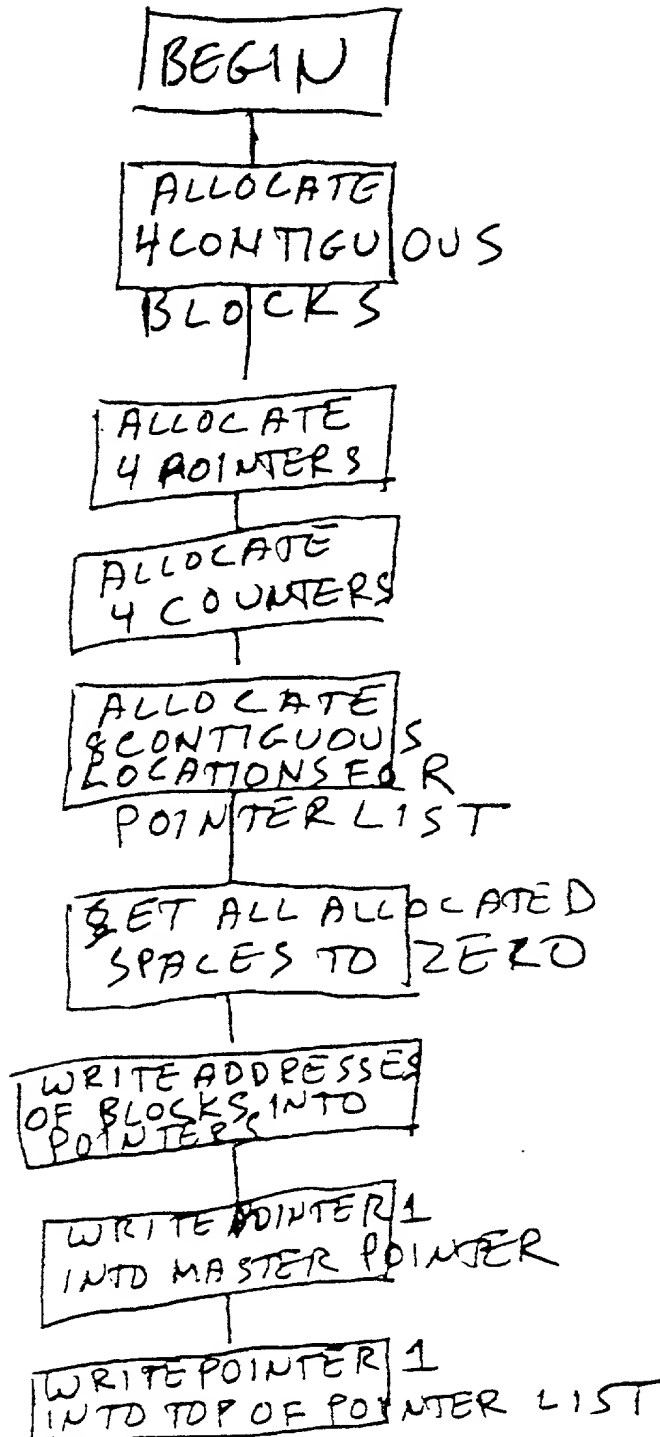 BEGIN
ALLOCATE
4 CONTIGUOUS
BLOCKS
ALLOCATE
4 POINTERS
ALLOCATE
4 COUNTERS
ALLOCATE
8 CONTIGUOUS
LOCATIONS FOR
POINTER LIST
SET ALL ALLOCATED
SPACES TO ZERO
WRITE ADDRESSES
OF BLOCKS INTO
POINTERS
WRITE POINTER 1
INTO MASTER POINTER
WRITE POINTER 1
INTO TOP OF POINTER LIST